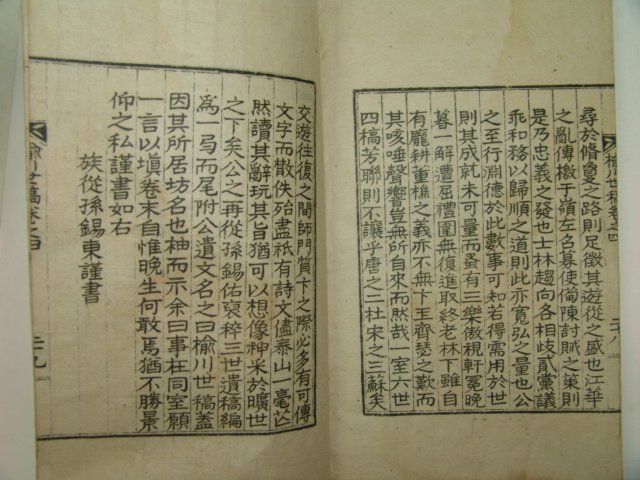 尋於脩夐之路則足徵其遊從之盛也江華
之亂傳檄于嶺左召募使備陳討賊之策則
是乃忠義之發也士林趨向各相歧貳黨議
乖和務以歸順之道則此亦寬弘之量也公
之至行淵德於此數事可知若得需用於世
則其成就未可量而蚤有三樂傲視軒冕晚
暮一解遭屈禮圍無復進取終老林下雖自
有龐耕董樵之義亦不無卞玉齊瑟之歎而
其咳唾聲響豈無所自來而然哉一室六世
四稿芳聯則不讓乎唐之二杜宋之三蘇矣
楡川世稿卷之四
二十八
交遊往復之間師門質卞之際必多有可傳
文字而散佚殆盡祇有詩文僅泰山一毫芒
然讀其辭玩其旨猶可以想像神采於曠世
之下矣公之再從孫錫佑裒稡三世遺稿編
爲一弓而尾附公遺文名之曰楡川世稿盖
因其所居坊名也袖而示余曰事在同室願
一言以塡卷末自惟晚生何敢焉猶不勝景
仰之私謹書如右
族從孫錫東謹書
楡川世稿卷之四
二十九